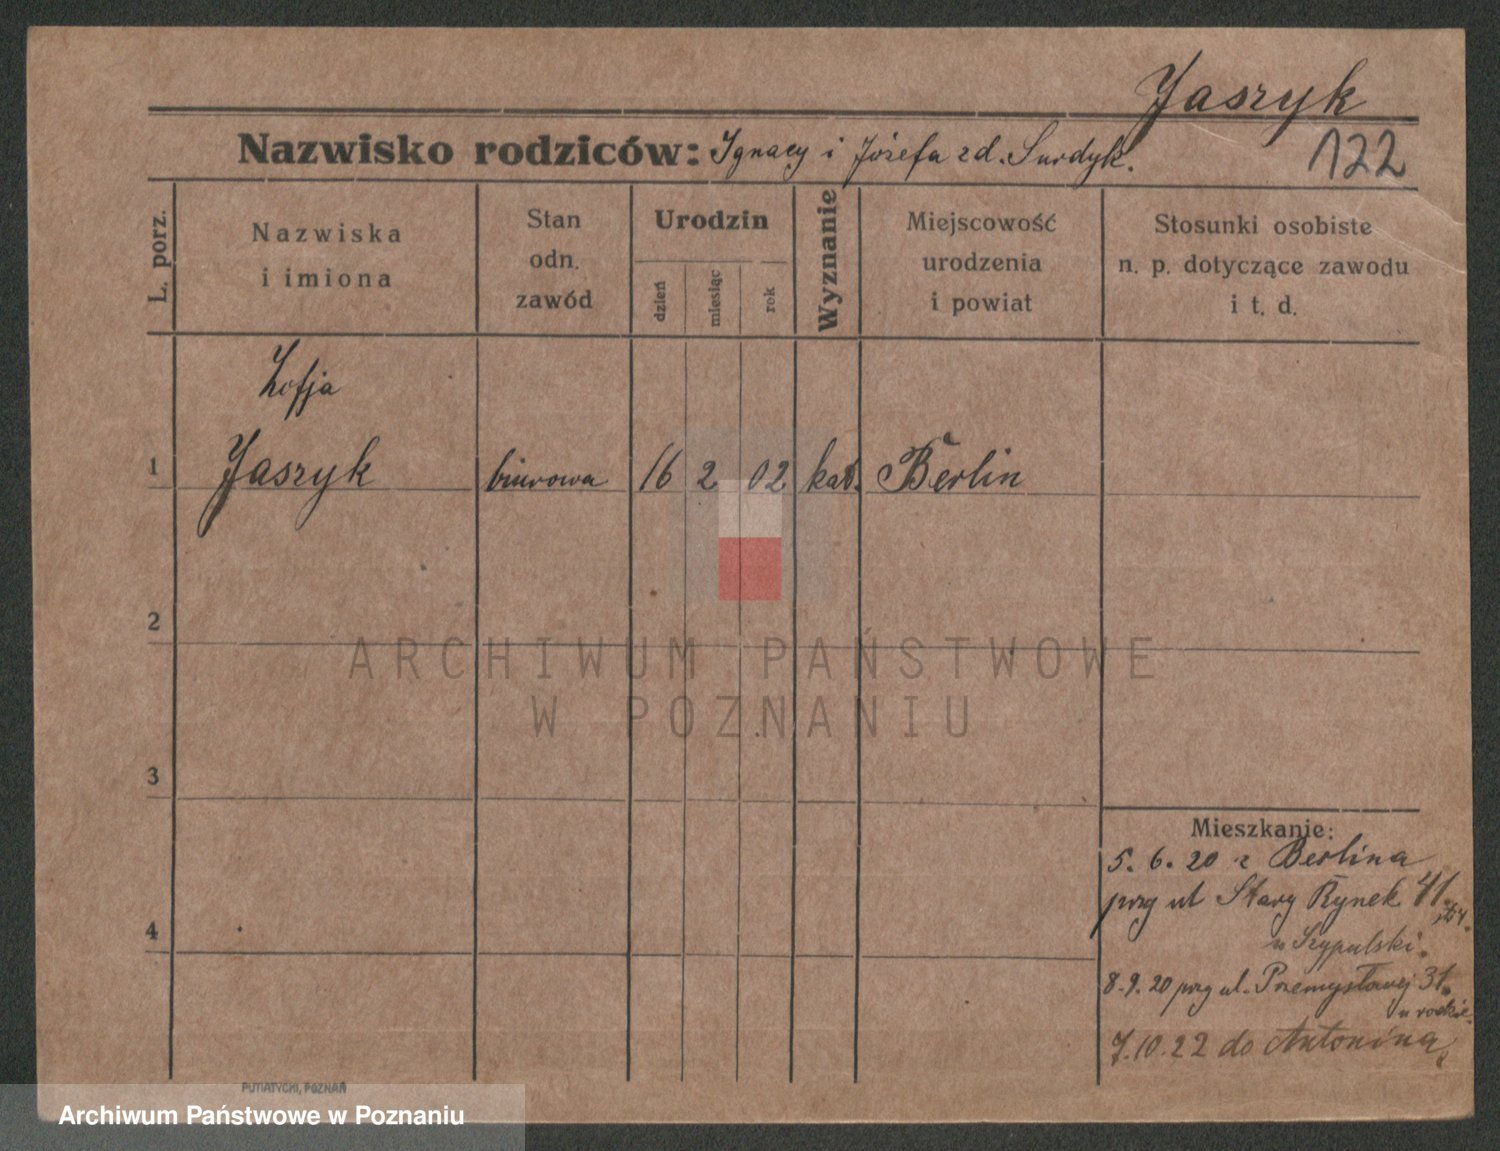 Jaszyk
Nazwisko rodziców: Ignacy i Józefa zd. Surdyk.
122
L. porz.
Nazwiska
i imiona
Stan
odn.
zawód
Urodzin
dzień
miesiąc
rok
Wyznanie
Miejscowość
urodzenia
i powiat
Stosunki osobiste
n. p. dotyczące zawodu
i t. d.
Zofja
1 Jaszyk biurowa 16 2 02 kat. Berlin
2
ARCHIWUM PAŃSTWOWE
W POZNANIU
3
4
Mieszkanie:
5. 6. 20 z Berlina
przy ul Stary Rynek 41.
u Szypulski.
8. 9. 20 przy ul. Przemysłowej 31.
7.10.22 do Antonina
PUTIATYCKI, POZNAŃ
Archiwum Państwowe w Poznaniu